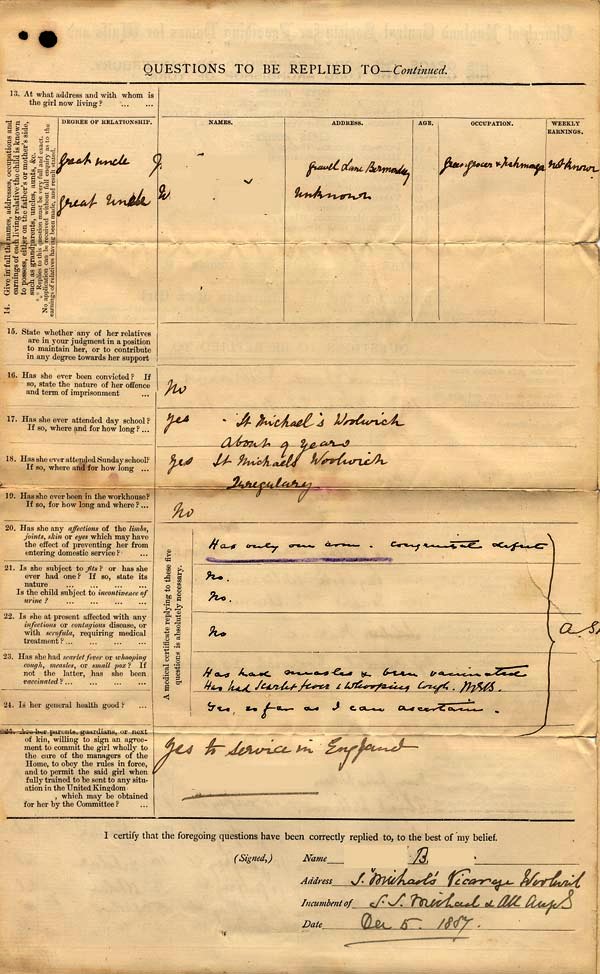 QUESTIONS TO BE REPLIED TO—Continued.
13. At what address and with whom is
the girl now living? ... ...
14. Give in full the names, addresses, occupations and
earnings of each living relative the child is known
to possess, either on the father's or mother's side,
such as grandparents, uncles, aunts, &c.
*** Replies to this question must be very full and exact.
No application can be received without full enquiry as to the
earnings of relatives having been made, and result stated.
DEGREE OF RELATIONSHIP. NAMES. ADDRESS. AGE. OCCUPATION. WEEKLY EARNINGS.
Great uncle J. Gravel Lane Bermondsey not known
Great Uncle W Unknown
15. State whether any of her relatives
are in your judgment in a position
to maintain her, or to contribute
in any degree towards her support
16. Has she ever been convicted? If
so, state the nature of her offence
and term of imprisonment ...
No
17. Has she ever attended day school?
If so, where and for how long? ...
Yes - St Michael's Woolwich
About 9 years
18. Has she ever attended Sunday school?
If so, where and for how long ...
Yes St Michaels Woolwich
Irregulary
19. Has she ever been in the workhouse?
If so, for how long and where? ...
No
A medical certificate replying to these five
questions is absolutely necessary.
20. Has she any affections of the limbs,
joints, skin or eyes which may have
the effect of preventing her from
entering domestic service? ...
Has only one arm - congenital defect
21. Is she subject to fits? or has she
ever had one? If so, state its
nature ... ... ...
Is the child subject to incontinence of
urine? ... ... ...
No.
No.
22. Is she at present affected with any
infectious or contagious disease, or
with scrofula, requiring medical
treatment? ... ... ...
No
23. Has she had scarlet fever or whooping
cough, measles, or small pox? If
not the latter, has she been
vaccinated? ... ... ...
Has had measles & been vaccinated
Has had Scarlet fever & Whooping Cough.
24. Is her general health good? ...
Yes, so far as I can ascertain.
25. Are her parents, guardians, or next
of kin, willing to sign an agree-
ment to commit the girl wholly to
the care of the managers of the
Home, to obey the rules in force,
and to permit the said girl when
fully trained to be sent to any situ-
ation in the United Kingdom
, which may be obtained
for her by the Committee? ...
Yes to service in England
I certify that the foregoing questions have been correctly replied to, to the best of my belief.
(Signed,) Name B
Address S. Michael's Vicarage Woolwich
Incumbent of S.S. Michael & All Angels
Date Dec 5. 1887.